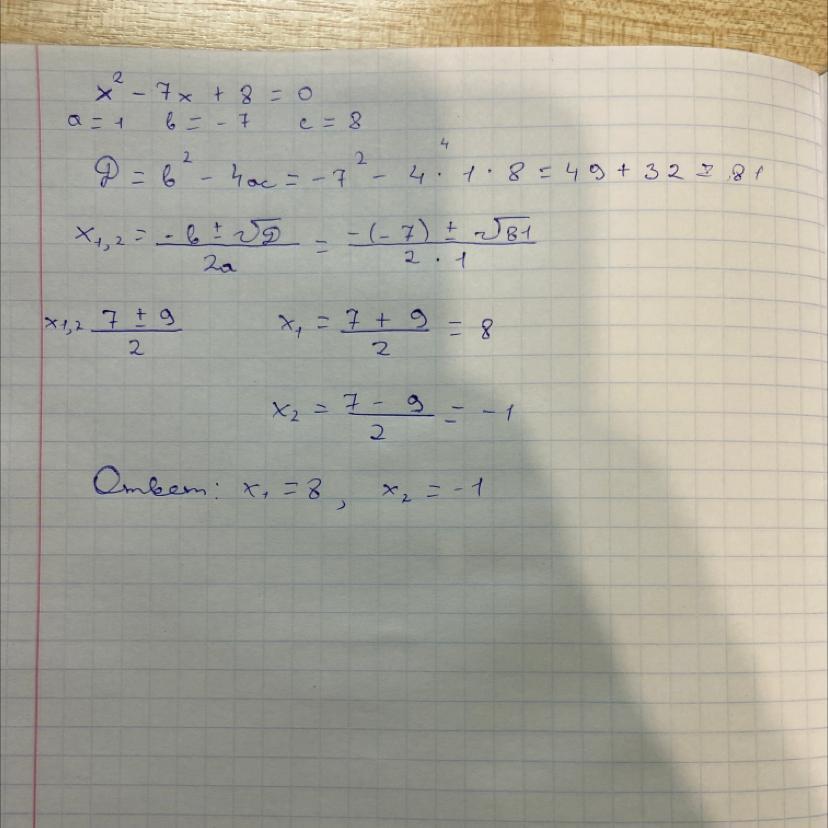 x² - 7x + 8 = 0
a = 1 b = -7 c = 8
D = b² - 4ac = -7² - 4 · 1 · 8 = 49 + 32 = 81
x₁,₂ = (-b ± √D)/(2a) = (-(-7) ± √81)/(2 · 1)
x₁,₂ (7 ± 9)/2 x₁ = (7 + 9)/2 = 8
x₂ = (7 - 9)/2 = -1
Ответ: x₁ = 8, x₂ = -1